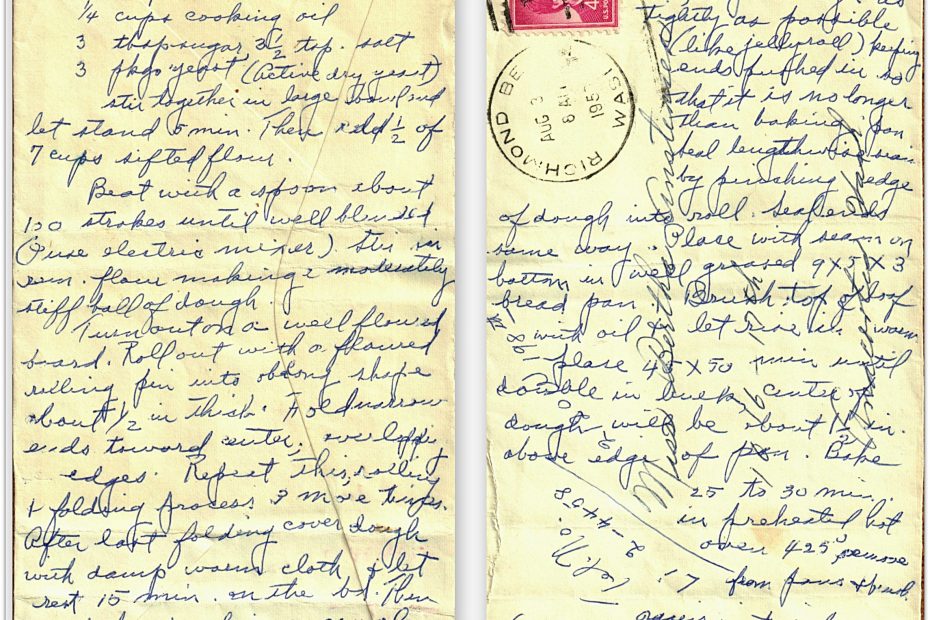 1/4 cups cooking oil
3 tbsp sugar 3 1/2 tsp. salt
3 pkgs yeast (Active dry yeast)
stir together in large bowl and
let stand 5 min. Then add 1/2 of
7 cups sifted flour.
Beat with a spoon about
150 strokes until well blended
(I use electric mixer). Stir in
rem. flour making a moderately
stiff ball of dough.
Turn out on a well floured
board. Roll out with a floured
rolling pin into oblong shape
about 1/2 in thick. Fold narrow
ends toward center, overlapping
edges. Repeat this, rolling
& folding process 3 more times.
After last folding cover dough
with damp warm cloth & let
rest 15 min. on the bd. Then
as
tightly as possible
(like jellyroll) keeping
ends pushed in so
that it is no longer
than baking pan
Seal lengthwise seam
by pinching edge
of dough into roll. Seal ends
same way. Place with seam on
bottom in well greased 9X5X3
bread pan. Brush top of loaf
with oil & let rise in warm
place 45 X 50 min until
double in bulk, center of
dough will be about 1 1/2 in.
above edge of pan. Bake
25 to 30 min.
in preheated hot
oven 425° remove
from pans & brush
4¢
U.S. POS
RICHMOND BE
WASH
AUG 3
8 AM
195
Miss Bertha
16 17th
2-4458